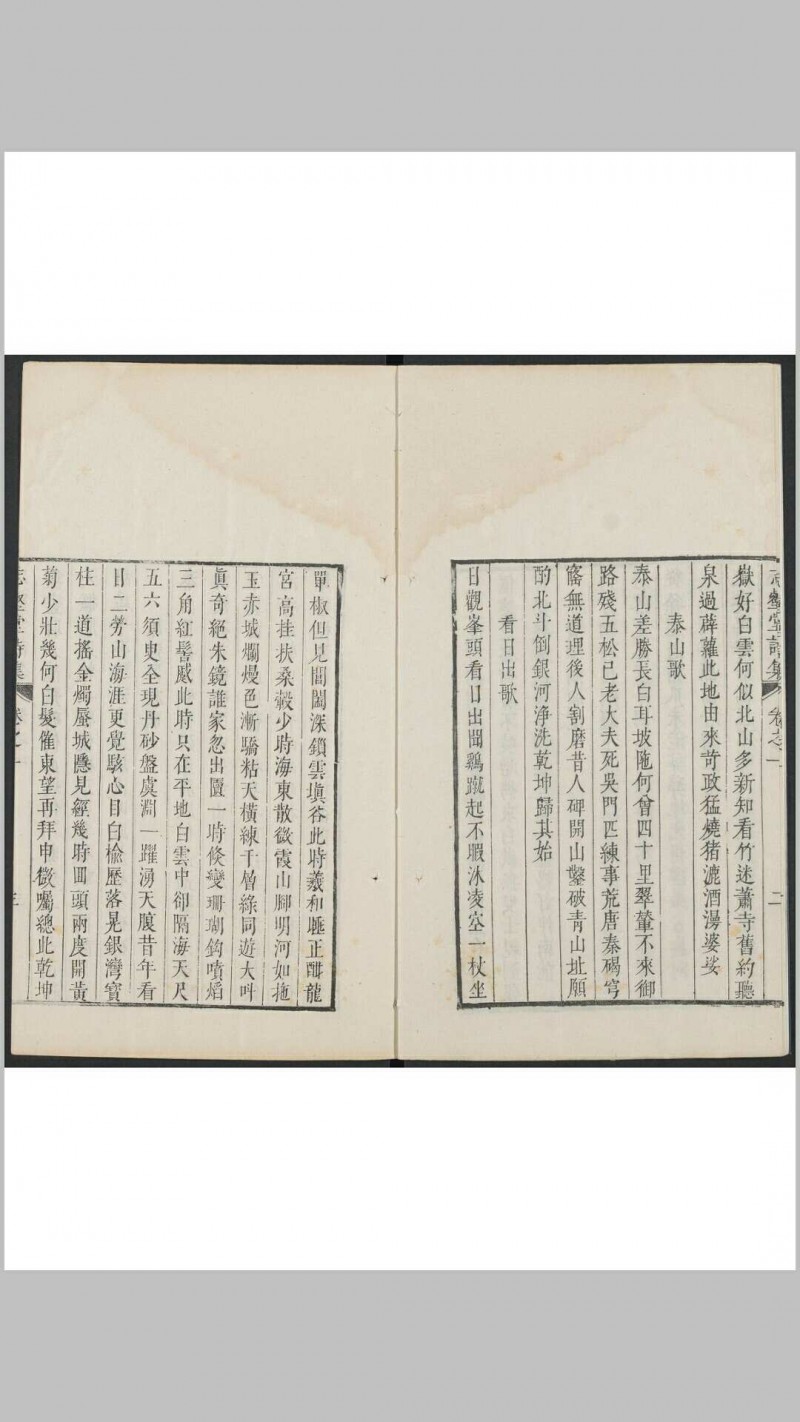 志壑堂詩集 卷之一 二
嶽好白雲何似北山多新知看竹迷蕭寺舊約聽
泉過薜蘿此地由來苛政猛燒猪漉酒漫婆娑
泰山歌
泰山差勝長白耳坡陁何曾四十里翠輦不來御
路殘五松已老大夫死吳門匹練事荒唐秦碣穹
窿無道理後人割磨昔人碑開山鑿破青山址願
酌北斗倒銀河净洗乾坤歸其始
看日出歌
日觀峯頭看日出聞鷄蹴起不暇沐凌空一杖坐
單椒但見閶闔深鎖雲塡谷此時羲和睡正酣龍
宮高挂扶桑轂少時海東散微霞山腳明河如拖
玉赤城爛熳色漸驕粘天橫練千層綠同遊大呌
眞奇絕朱鏡誰家忽出匵一時倐變珊瑚鈎噴熖
三角紅髻蹙此時只在平地白雲中卻隔海天尺
五六須臾全現丹砂盤虞淵一躍湧天廈昔年看
日二勞山海涯更覺駭心目白楡歷落晃銀灣寶
柱一道搖金燭蜃城隱見經幾時囬頭兩度開黃
菊少壯幾何白髮催東望再拜申微囑總此乾坤
志壑堂詩集 卷之一 三